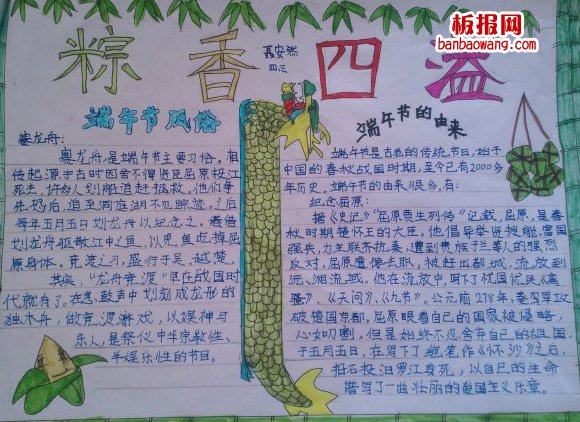 板报网
banbaowang.com
粽香四溢
聂安然
四三
端午节风俗
赛龙舟:
赛龙舟,是端午节主要习俗。相
传起源于古时因舍不得贤臣屈原投江
死去,许多人划船追赶拯救。他们争
先恐后,追至洞庭湖不见踪迹,之后
每年五月五日划龙舟以纪念之。藉借
划龙舟驱散江中之鱼,以免鱼吃掉屈
原身体。竞渡之习,盛行于吴、越、楚。
其实,“龙舟竞渡”早在战国时
代就有了。在急鼓声中划刻成龙形的
独木舟,做竞渡游戏,以娱神与
乐人,是祭仪中半宗教性、
半娱乐性的节目。
端午节的由来
端午节是古老的传统节日,始于
中国的春秋战国时期,至今已有2000多
年历史。端午节的由来很多,有:
纪念屈原:
据《史记》“屈原贾生列传”记载,屈原,是春
秋时期楚怀王的大臣。他倡导举贤授能,富国
强兵,力主联齐抗秦,遭到贵族子兰等人的强烈
反对,屈原遭馋去职,被赶出都城,流放到
沅、湘流域。他在流放中,写下了忧国忧民《离
骚》、《天问》、《九歌》。公元前278年,秦军攻
破楚国京都,屈原眼看自己的国家被侵略,
心如刀割,但是始终不忍舍弃自己的祖国,
于五月五日,在写下了绝笔作《怀沙》之后,
抱石投汨罗江身死,以自己的生命
谱写了一曲壮丽的爱国主义乐章。